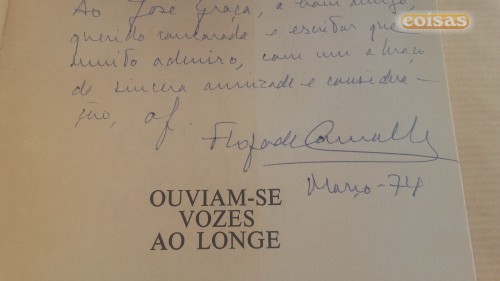 coisas
Ao José Graça, a bom amigo,
querido camarada e escritor que
muito admiro, com um abraço
de sincera amizade e conside-
ração, af.
Março - 74
OUVIAM-SE
VOZES
AO LONGE